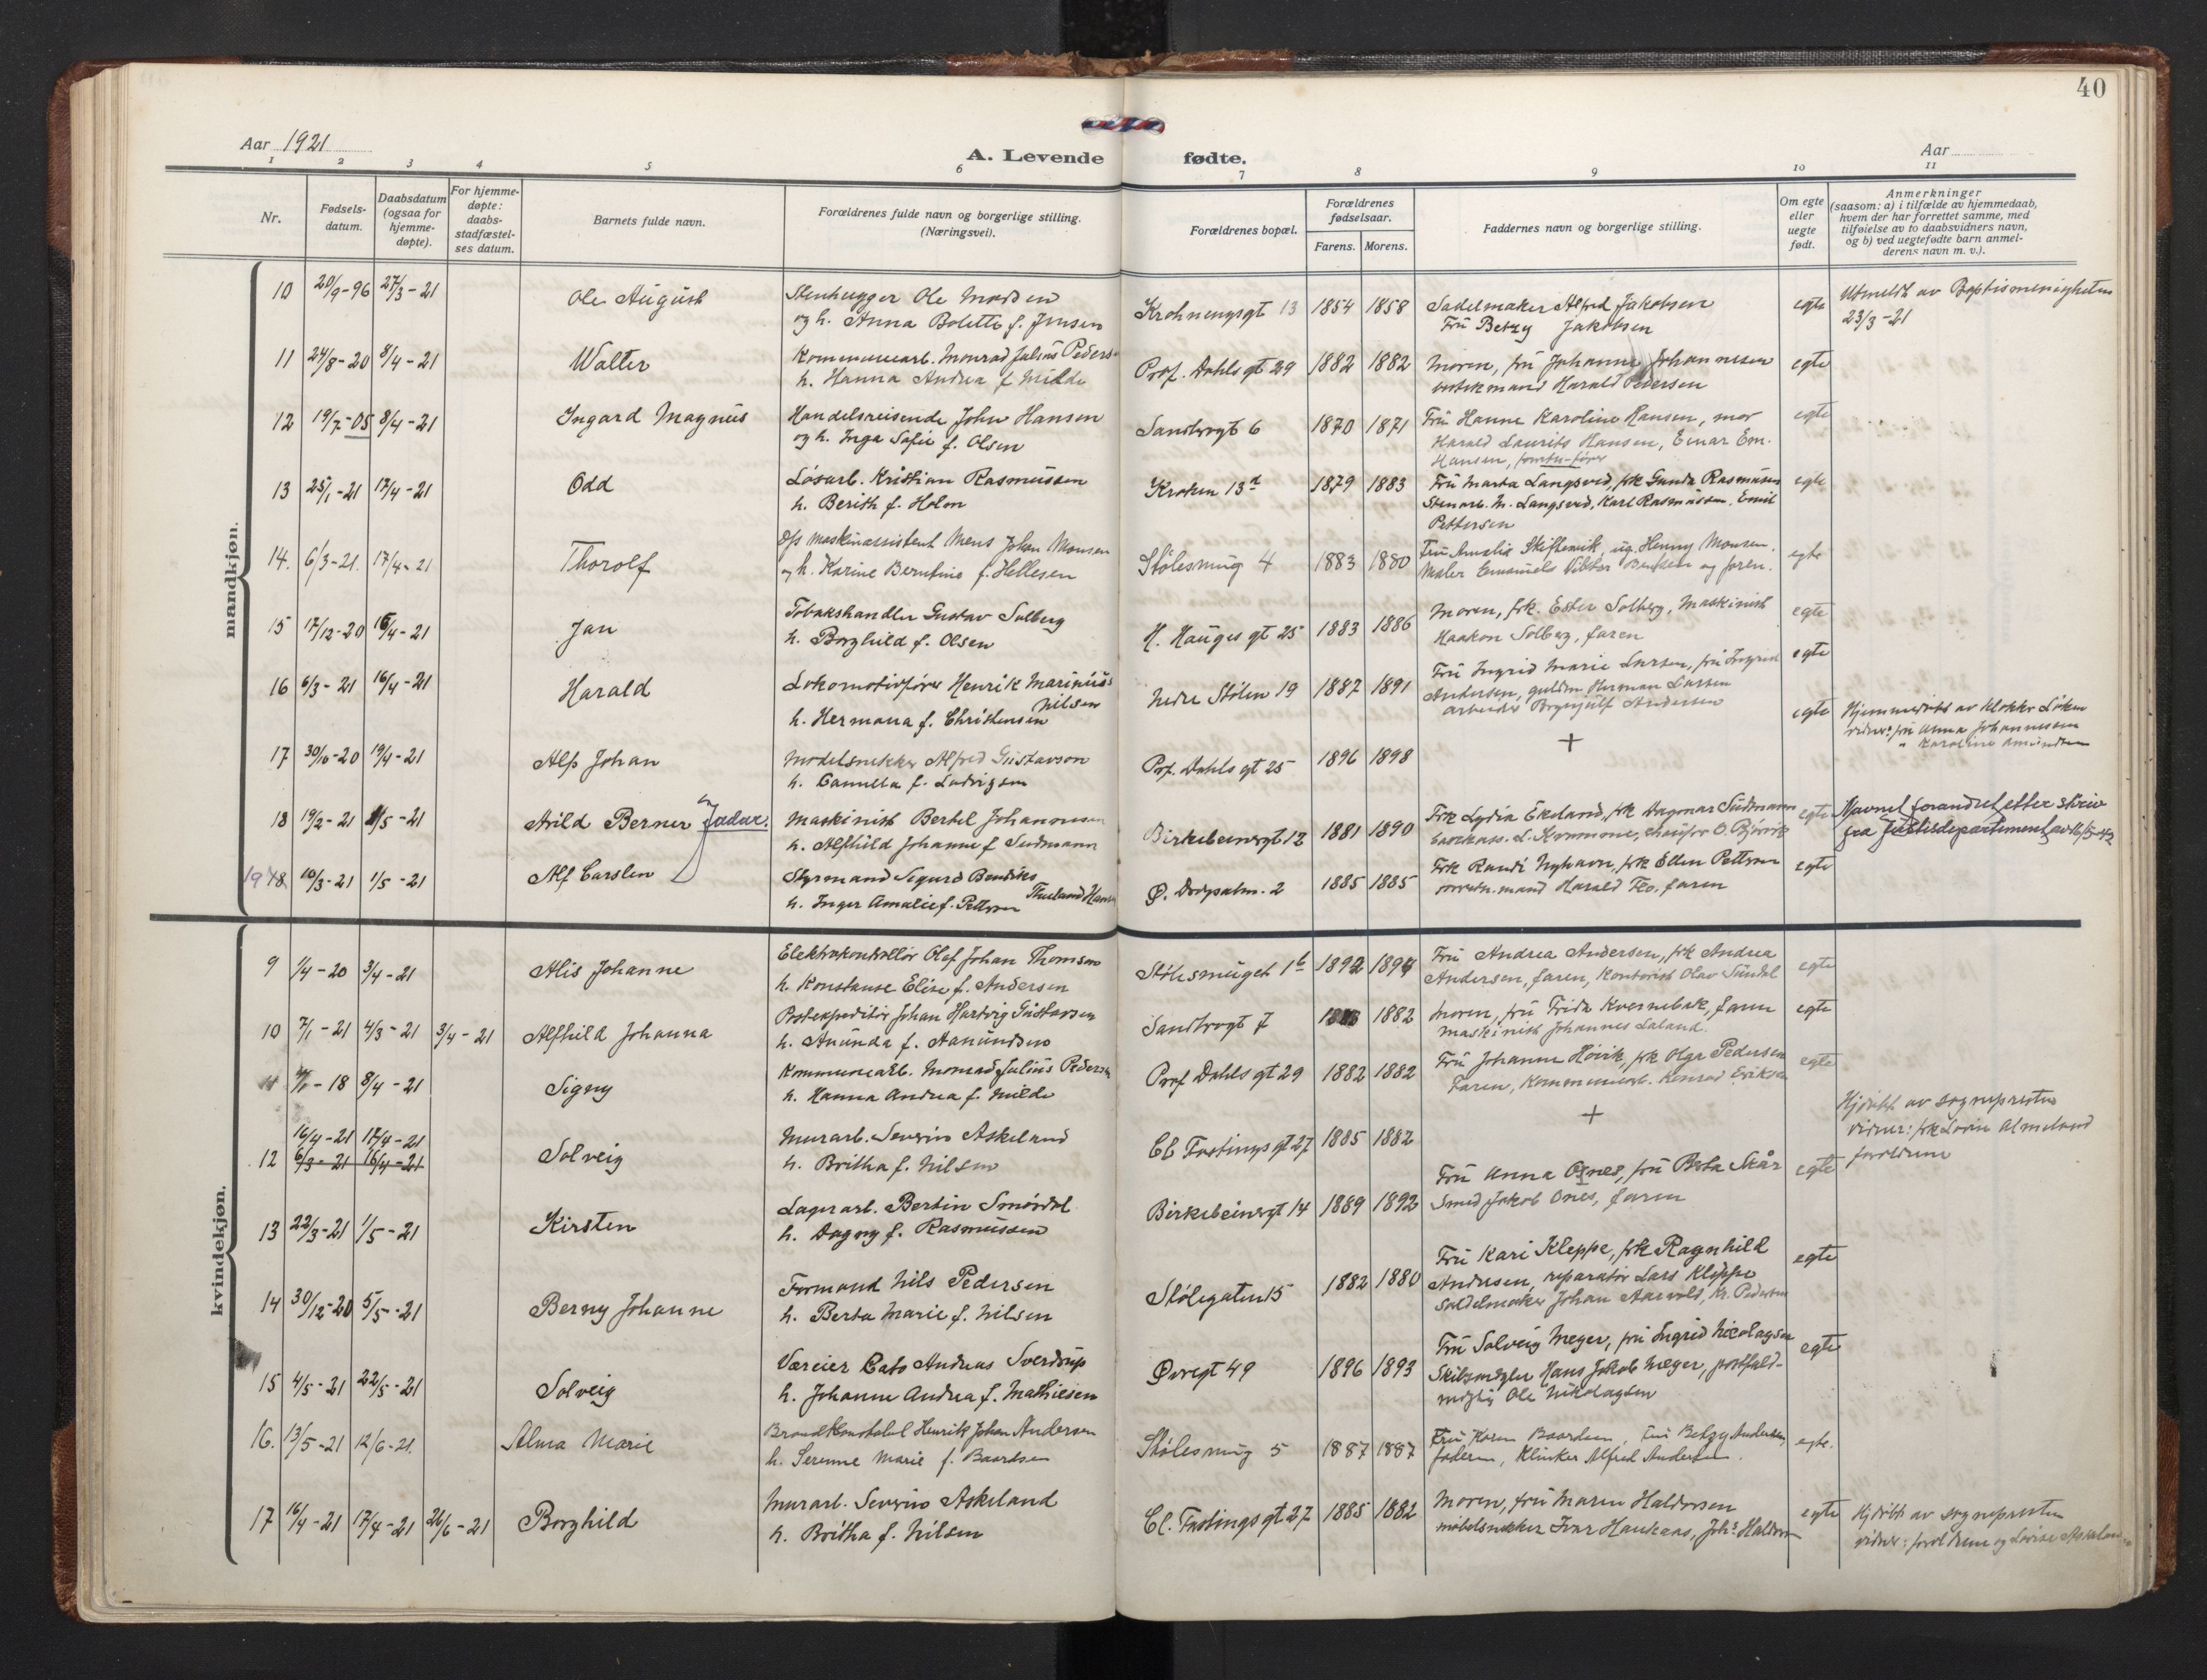 40
Aar 1921
A. Levende fødte.
Aar
1 2 3 4 5 6 7 8 9 10 11
Nr.
Fødselsdatum.
Daabsdatum (ogsaa for hjemmedøpte).
For hjemmedøpte: daabsstadfæstelses datum.
Barnets fulde navn.
Forældrenes fulde navn og borgerlige stilling. (Næringsvei).
Forældrenes bopæl.
Forældrenes fødselsaar.
Farens. Morens.
Faddernes navn og borgerlige stilling.
Om egte eller uegte født.
Anmerkninger (saasom: a) i tilfælde av hjemmedaab, hvem der har forrettet samme, med tilføielse av to daabsvidners navn, og b) ved uegtefødte barn anmelderens navn m. v.).
mandkjøn.
10 20/9-96 27/3-21 Ole August Stenhugger Ole Madsen Krohnengsgt 13 1854 1858 Sadelmaker Alfred Jakobsen egte Utmeldt av Baptismenigheten
og h. Anna Bolette f. Jensen Frü Betzy Jakobsen 23/3-21
11 24/8-20 8/4-21 Walter Kommunearb. Monrad Julius Peders Prof. Dahls gt 29 1882 1882 Moren, frü Johanne Johannesen egte
h. Hanna Andrea f Milde Harald Pedersen
12 19/7-05 8/4-21 Ingard Magnus Handelsreisende John Hansen Sandbrogt 6 1870 1871 Frü Hanne Karoline Hansen, mor egte
og h. Inga Sofie f. Olsen Harald Laurits Hansen, Einar Em.
Hansen,
13 25/1-21 17/4-21 Odd Løsarb. Kristian Rasmussen Kroken 13 1879 1883 Frü Marta Langsved, frk Gunda Rasmussen egte
h. Berith f. Holm Stenarb. M. Langsved, Karl Rasmussen, Emil
Pettersen
14. 6/3-21. 17/4-21 Thorolf D/s Maskinassistent Mens Johan Monsen Stølesmug 4 1883 1880 Frü Amalie Skiftesvik, ug. Henny Monsen. egte
og h. Karine Berntine f. Hellesen Maler Emanuels Viktor Bentsen og faren.
15 17/12-20 16/4-21 Jan Tobakshandler Gustav Solberg H. Hauges gt 25 1883 1886 Moren, frk. Ester Solberg, Maskinist egte
h. Borghild f. Olsen Haakon Solberg, faren
16 6/3-21 16/4-21 Harald Lokomotivfører Henrik Marinius Nilsen Nedre Stølen 19 1887 1891 Frü Ingrid Marie Larsen, frü Ingrid egte
h. Hermana f. Christensen Andersen, guldsm Herman Larsen
arbeider Brynjulf Andersen
17 30/10-20 19/4-21 Alf Johan Modelsnekker Alfred Gustavson Prof. Dahls gt 25 1896 1898 + egte Hjemmedøbt av klokker Løken
h. Camilla f. Ludvigsen vidner: frü Anna Johannessen
" Karoline Amundsen
18 19/2-21 1/5-21 Arild Berner Jadar. Maskinist Bertel Johannesen Birkebeinergt 12 1881 1890 Frk Lydia Ekeland, frk Dagmar Sudmann egte Navnet forandret etter skriv
h. Alfhild Johanne f Sudmann L. Krommone, chaufør O. Bjørvik fra Justisdepartementet av 16/5-42
19 10/3-21 1/5-21 Alf Carsten Styrmand Sigurd Bendiks Thueland Hansen Ø. Dregsalm. 2 1885 1885 Frk Randi Nyhavn, frk Ellen Petterson egte
h. Inger Amalie f. Petterson Harald Feo, faren
kvindekjøn.
9 1/4-20 3/4-21 Alis Johanne Elektrokontrollør Olaf Johan Thomson Stølesmuget 1b 1892 1894 Frü Andrea Andersen, frk Andrea egte
h. Konstanse Elise f. Andersen Andersen, faren, Kontorist Olav Sundal
10 7/1-21 4/3-21 3/4-21 Alfhild Johanna Postexpeditør Johan Hartvig Gustavsen Sandbrogt 7 1882 Moren, frü Frida Kvernebak, faren egte
h. Amunda f. Aamundsen maskinist Johannes Laland.
11 -18 8/4-21 Signy Kommunearb. Monrad Julius Pedersen Prof Dahls gt 29 1882 1882 Frü Johanne Høvik, frk Olga Pedersen egte
h. Hanna Andrea f. Milde Faren, Kommunearb. Konrad Eriksen
12 16/4-21 17/4-21 Solveig Murarb. Severin Askeland Cl. Fastings gt 27 1885 1882 + egte Hjdøbt av sognepresten
6/3-21 16/4-21 h. Britha f. Nilsen vidner: frk Lovise Almeland
foreldrene
13 22/3-21 1/5-21 Kirsten Lagerarb. Bertin Smørdal Birkebeinergt 14 1889 1892 Frü Anna Osnes, frü Berta Skår
h. Dagny f. Rasmussen Smed Jakob Osnes, faren
14 30/12-20 5/5-21 Berny Johanne Formand Nils Pedersen Stølegaten 15 1882 1880 Frü Kari Kleppe, frk Ragnhild egte
h. Berta Marie f. Nilsen Andersen, reparatør Lars Kleppe
Saldelmaker Johan Aarvold, Kr. Pedersen
15 4/5-21 22/5-21 Solveig Væreier Cato Andreas Sverdrup Øvregt 49 1896 1893 Frü Solveig Meyer, frü Ingrid Nicolaysen egte
h. Johanne Andrea f. Mathiesen Skibsmægler Hans Jakob Meyer, postfuldmægtig Ole Nikolaysen
16. 13/5-21 12/6-21. Alma Marie Brandkonstabel Henrik Johan Andersen Stølesmug 5 1887 1887 Frü Karen Baardsen, Frü Betzy Andersen, egte.
h. Serenne Marie f. Baardsen faderen, Klinker Alfred Andersen.
17 16/4-21 17/4-21 26/6-21 Borghild Murarb. Severin Askeland Cl. Fastings gt 27 1885 1882 Moren, frü Maren Haldorsen egte Hjdøbt av sognepresten
h. Britha f. Nilsen møbelsnekker Ivar Haukaas, Johs. Haldorsen vidner: foreldrene og Lovise